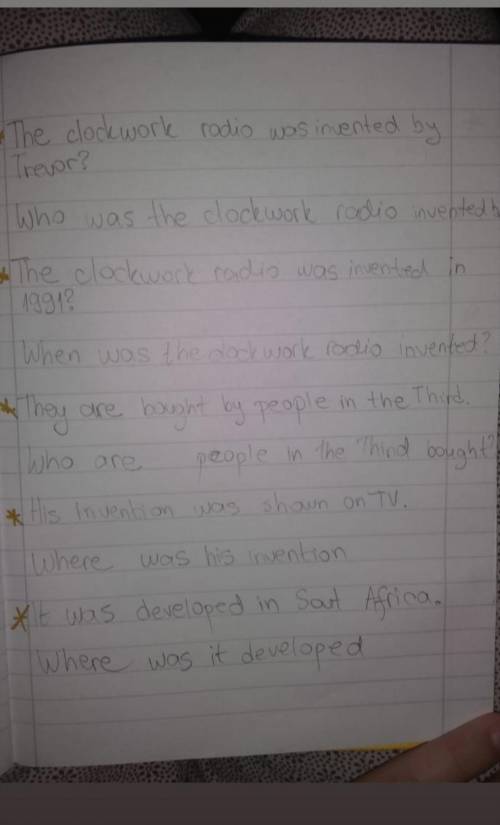 The clockwork radio was invented by
Trevor?
Who was the clockwork radio invented b
* The clockwork radio was invented in
1991?
When was the clockwork radio invented?
* They are bought by people in the Third.
Who are people in the Thind bought?
* His Invention was shown on TV.
Where was his invention
* It was developed in Sout Africa.
Where was it developed